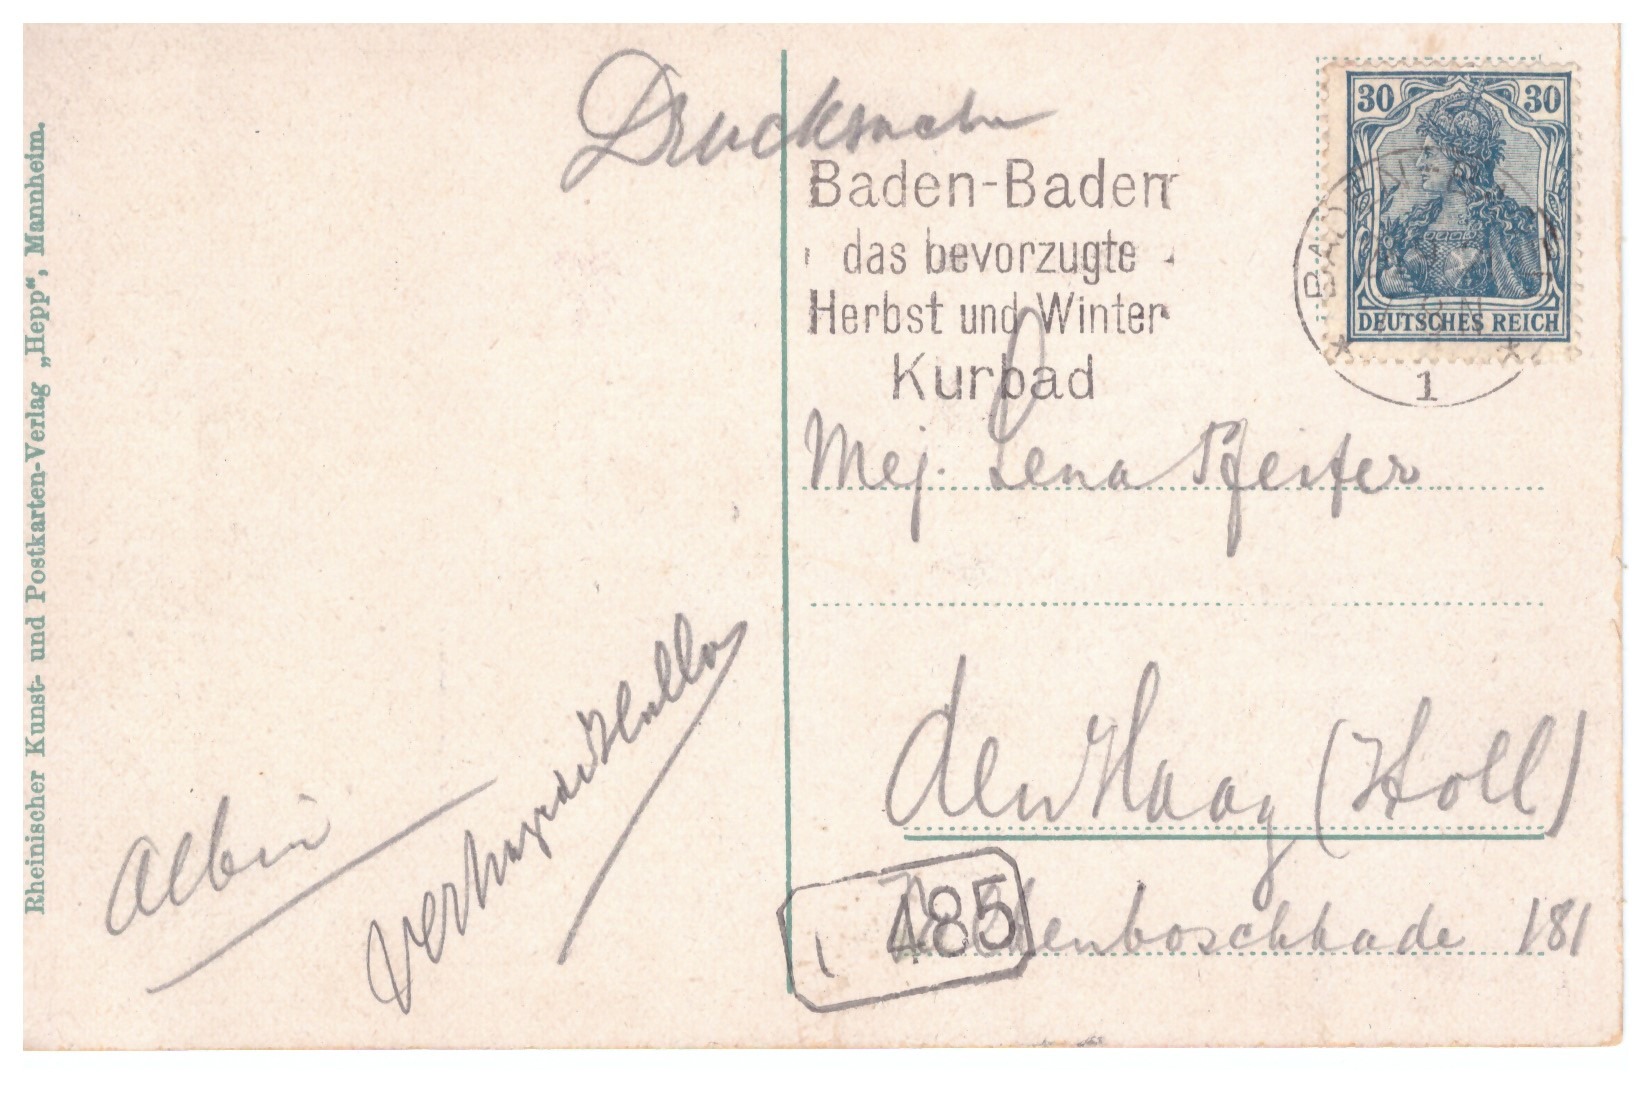 Rheinischer Kunst- und Postkarten-Verlag „Hepp“, Mannheim.
Drucksache
Baden-Baden
das bevorzugte
Herbst und Winter
Kurbad
30 30
DEUTSCHES REICH
1
Mej. Lena Pfeifer
den Haag (Holl)
kade 181
485
Albin